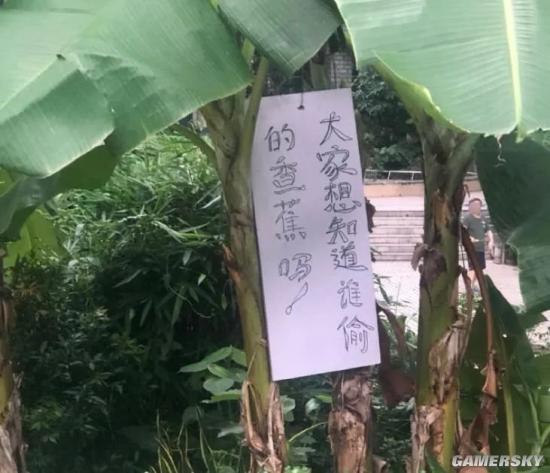 大家想知道谁偷
的香蕉吗！
GAMERSKY